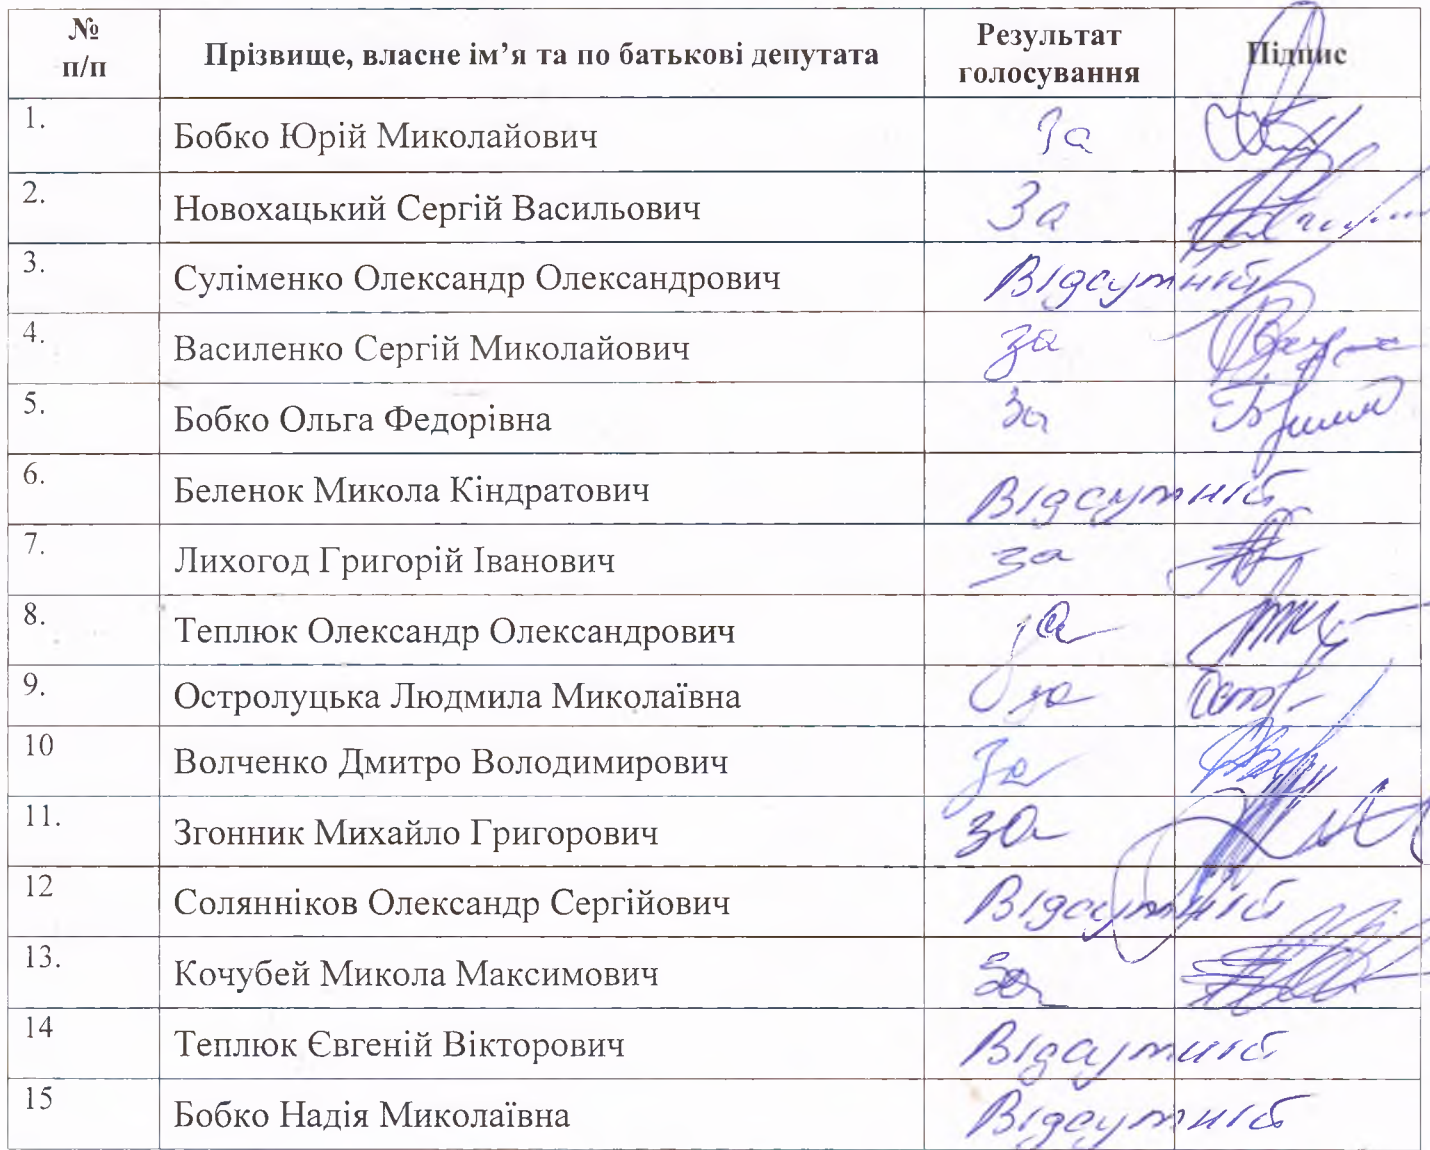 № п/п Прізвище, власне ім’я та по батькові депутата Результат голосування Підпис
1. Бобко Юрій Миколайович За
2. Новохацький Сергій Васильович За
3. Суліменко Олександр Олександрович Відсутній
4. Василенко Сергій Миколайович за
5. Бобко Ольга Федорівна За
6. Беленок Микола Кіндратович Відсутній
7. Лихогод Григорій Іванович за
8. Теплюк Олександр Олександрович за
9. Остролуцька Людмила Миколаївна за
10 Волченко Дмитро Володимирович За
11. Згонник Михайло Григорович за
12 Солянніков Олександр Сергійович Відсутній
13. Кочубей Микола Максимович За
14 Теплюк Євгеній Вікторович Відсутній
15 Бобко Надія Миколаївна Відсутній